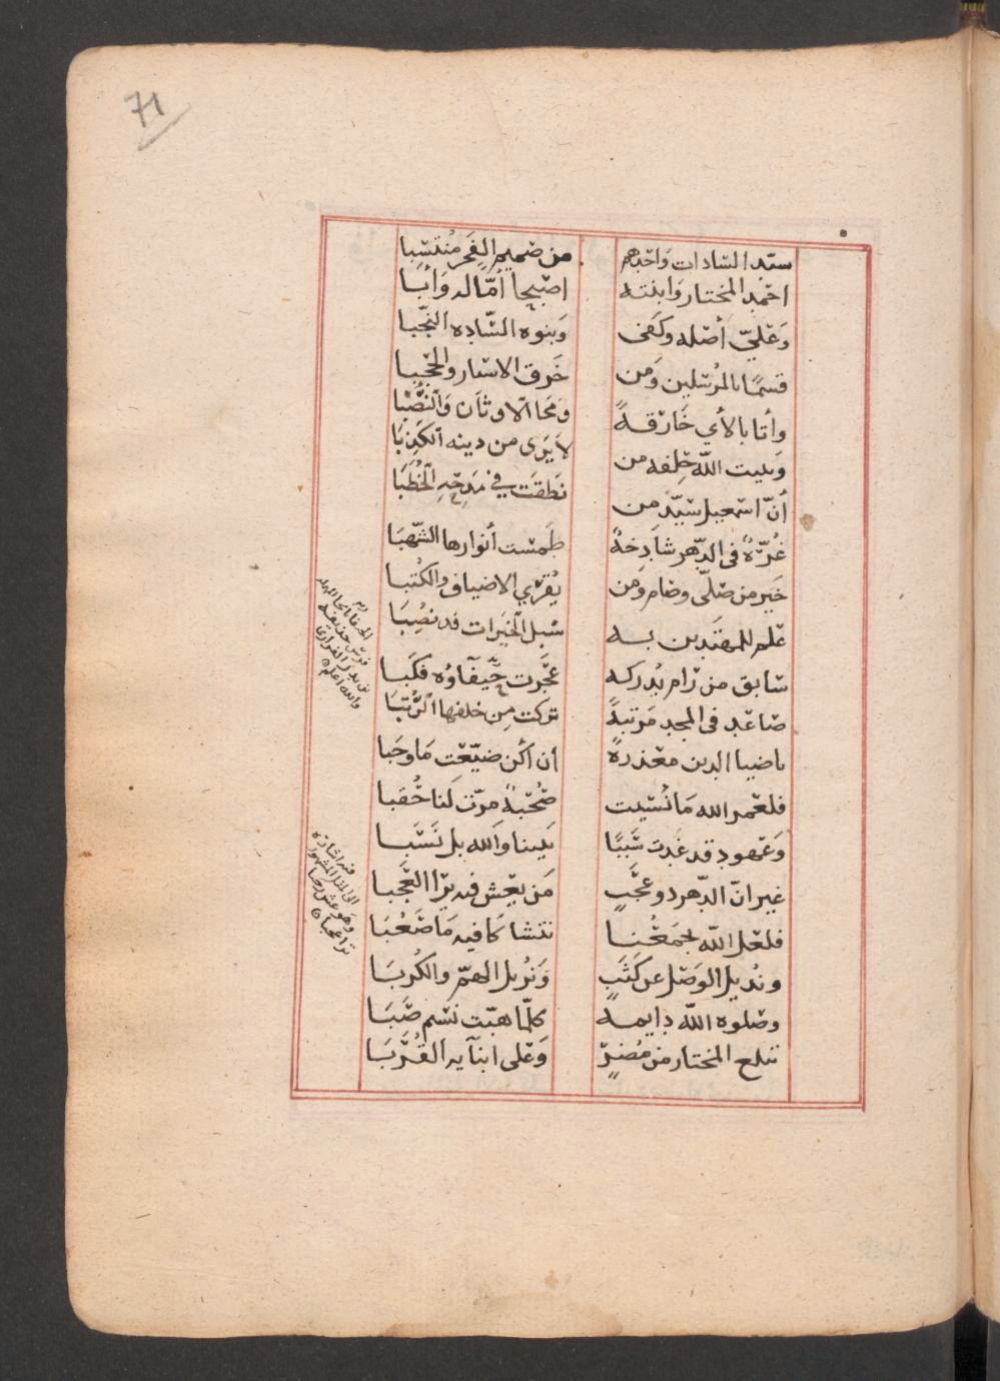 71
سيد السادات واحدهم من صميم الفخر منتسبا
احمد المختار وابنته اصبحا أمّا له وأبا
وعليّ أصله وكفى وبنوه السّاده النّجبا
قسمًا بالمرسلين ومن خرق الاستار والحجبا
وأتا بالأي خارقةً ومحا الاوثان والنّصبا
وببيت اللّه خلفه من لا يرى من دينه الكذبا
أنّ اسمعيل سيّد من نطقت في مدحه الخطبا
غُرّةٌ في الدّهر شادخةٌ طمست أنوارها الشّهبا
خير من صلّى وصام ومن يُقرّي الاضياف والكتبا
علم للمهتدين به سبل الخيرات قد نصبا
سابق من رام يدركه عجّرت حيفاؤه فكبا
صاعد في المجد مرتبةً تركت من خلفها الرّتبا
يا ضيا الدين معذرةً ان أكن ضيّعت ما وجبا
فلعمر الله ما نسيت صُحبةً مرّت لنا حُقبا
وعهود قد غدت سببًا بيننا والله بل نسبا
غير انّ الدّهر ذو عجبٍ من يعش فيه يرا العجبا
فلعل اللّه يجمعنا
ونُديل الوصل عن كثبٍ ونزيل الهمّ والكُربا
وصلوة اللّه دايمه كلّما هبّت نسم صبا
تبلغ المختار من مُضرٍ وعلى ابنايه القُرَبا
حذيفه
بن بدر الفزاري
والله اعلم
فيه اشارة
الى المثل المشهور
وهو عش رجبا
ترا عجبا